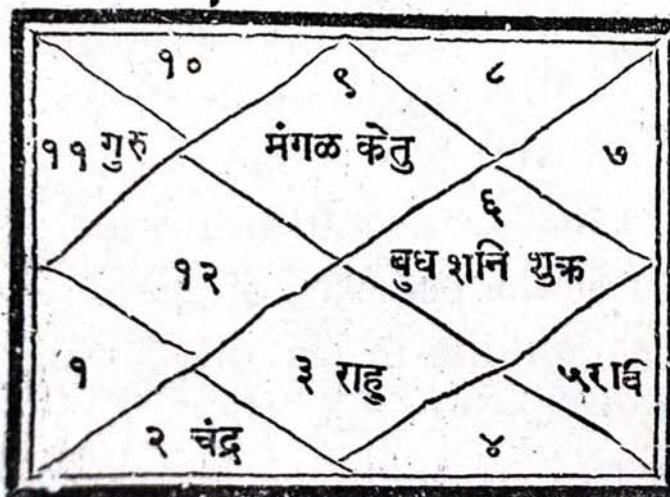 १० ९ ८
११ गुरु मंगळ केतु ७
६
१२ बुध शनि शुक्र
१ ३ राहु ५ रवि
२ चंद्र ४